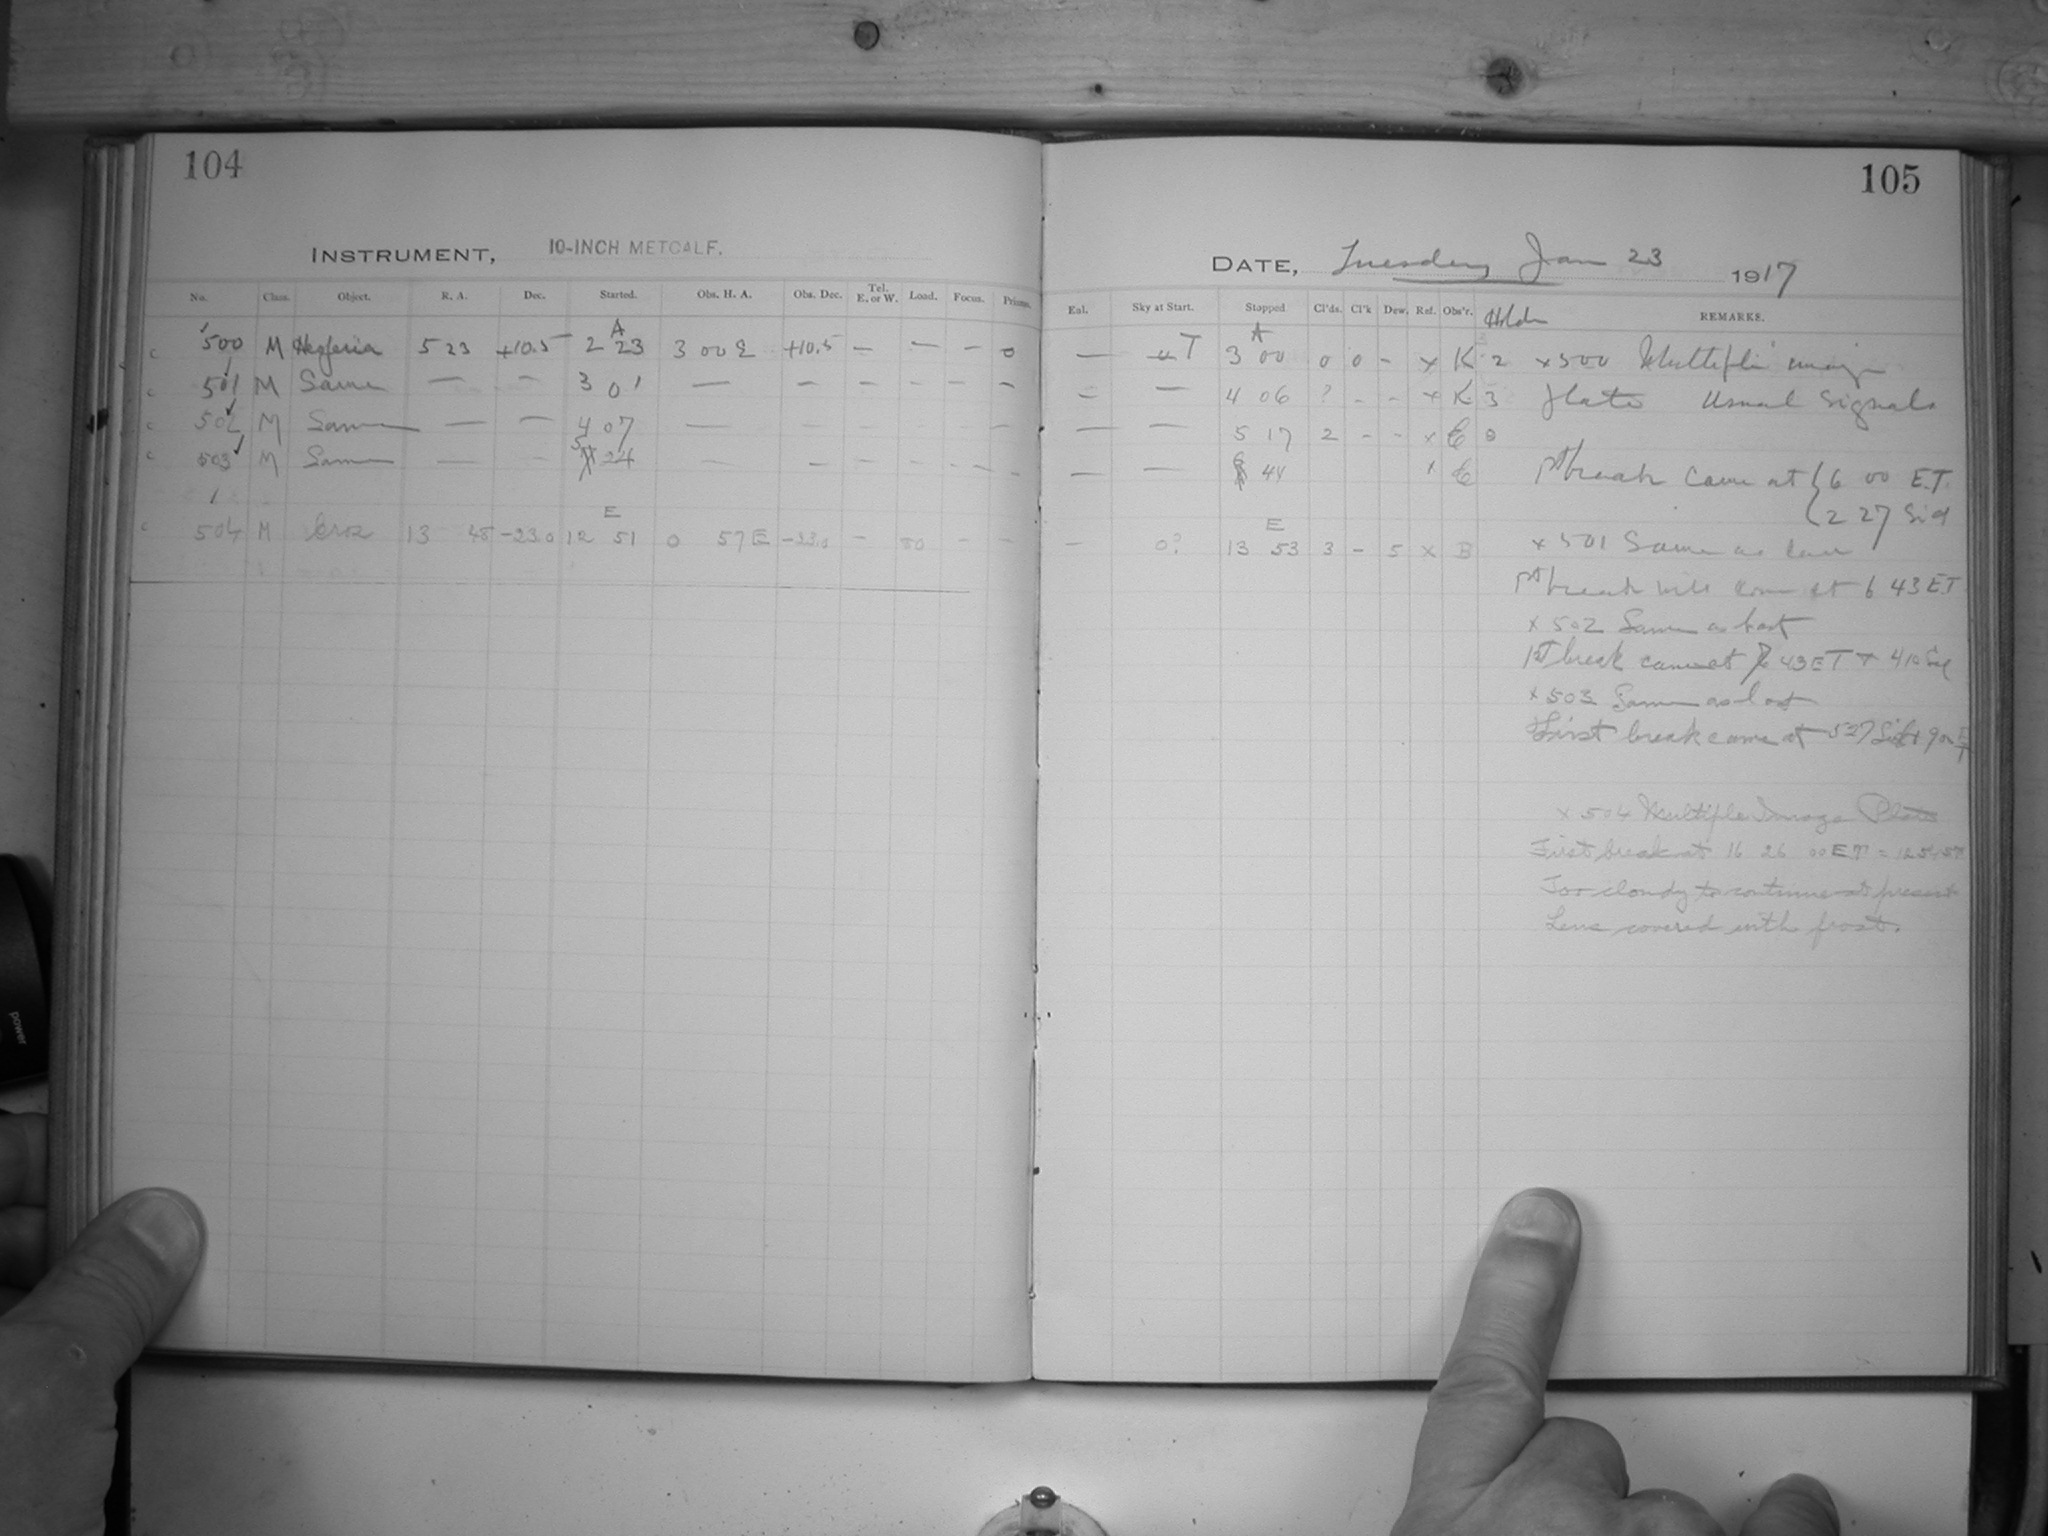 104
INSTRUMENT, 10-INCH METCALF.
No. Class. Object. R. A. Dec. Started. Obs. H. A. Obs. Dec. Tel. E. or W. Load. Focus. Prisms.
A
c 500 M 5 23 +10.5 2 23 3 00 E +10.5 — — — 0
c 501 M Same — — 3 01 — — — — — —
c 502 M Same — — 4 07 —
c 503 M Same — — 5 24 — — — — — —
E
c 504 M Eros 13 48 -23.0 12 51 0 57 E -23.0 — 80 — —
105
DATE, Tuesday Jan 23 1917
Eal. Sky at Start. Stopped Cl'ds. Cl'k Dew. Ref. Obs'r. Holder REMARKS.
A
— T 3 00 0 0 - x K 2 x500 Multiple image
— — 4 06 ? - - x K 3 Plate Usual Signals
— — 5 17 2 - - x
— — 6 44 x 1st break came at 6 00 E.T.
2 27 Sid
E
— 0? 13 53 3 - 5 x B x 501 Same as last
1st break will come at 6 43 ET
x 502 Same as last
1st break came at 7 43 ET + 4 10 Sid
x 503 Same as last
First break came at 5 27 Sid + 9 00 ET
x 504 Multiple Image Plate
First break at 16 26 00 ET =
Too cloudy to continue at present
Lens covered with frost.
power